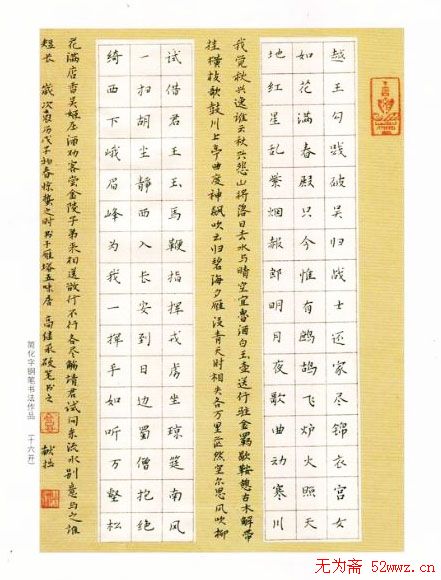 越王勾践破吴归战士还家尽锦衣宫女
如花满春殿只今惟有鹧鸪飞炉火照天
地红星乱紫烟赧郎明月夜歌曲动寒川
我觉秋兴逸谁云秋兴悲山将落日去水与晴空宜鲁酒白玉壶送行驻金羁歇鞍憩古木解带
挂横枝歌鼓川上亭曲度神飙吹云归碧海夕雁没青天时相失各万里茫然空尔思风吹柳
试借君王玉马鞭指挥戎虏坐琼筵南风
一扫胡尘静西入长安到日边蜀僧抱绝
绮西下峨眉峰为我一挥手如听万壑松
花满店香吴姬压酒劝客尝金陵子弟来相送欲行不行各尽觞请君试问东流水别意与之谁
短长 岁次农历戊子初春惊蛰之时书于雁塔五味居 高继承硬笔书之 献拙
简化字钢笔书法作品（十六开）
无为斋 52wwz.cn